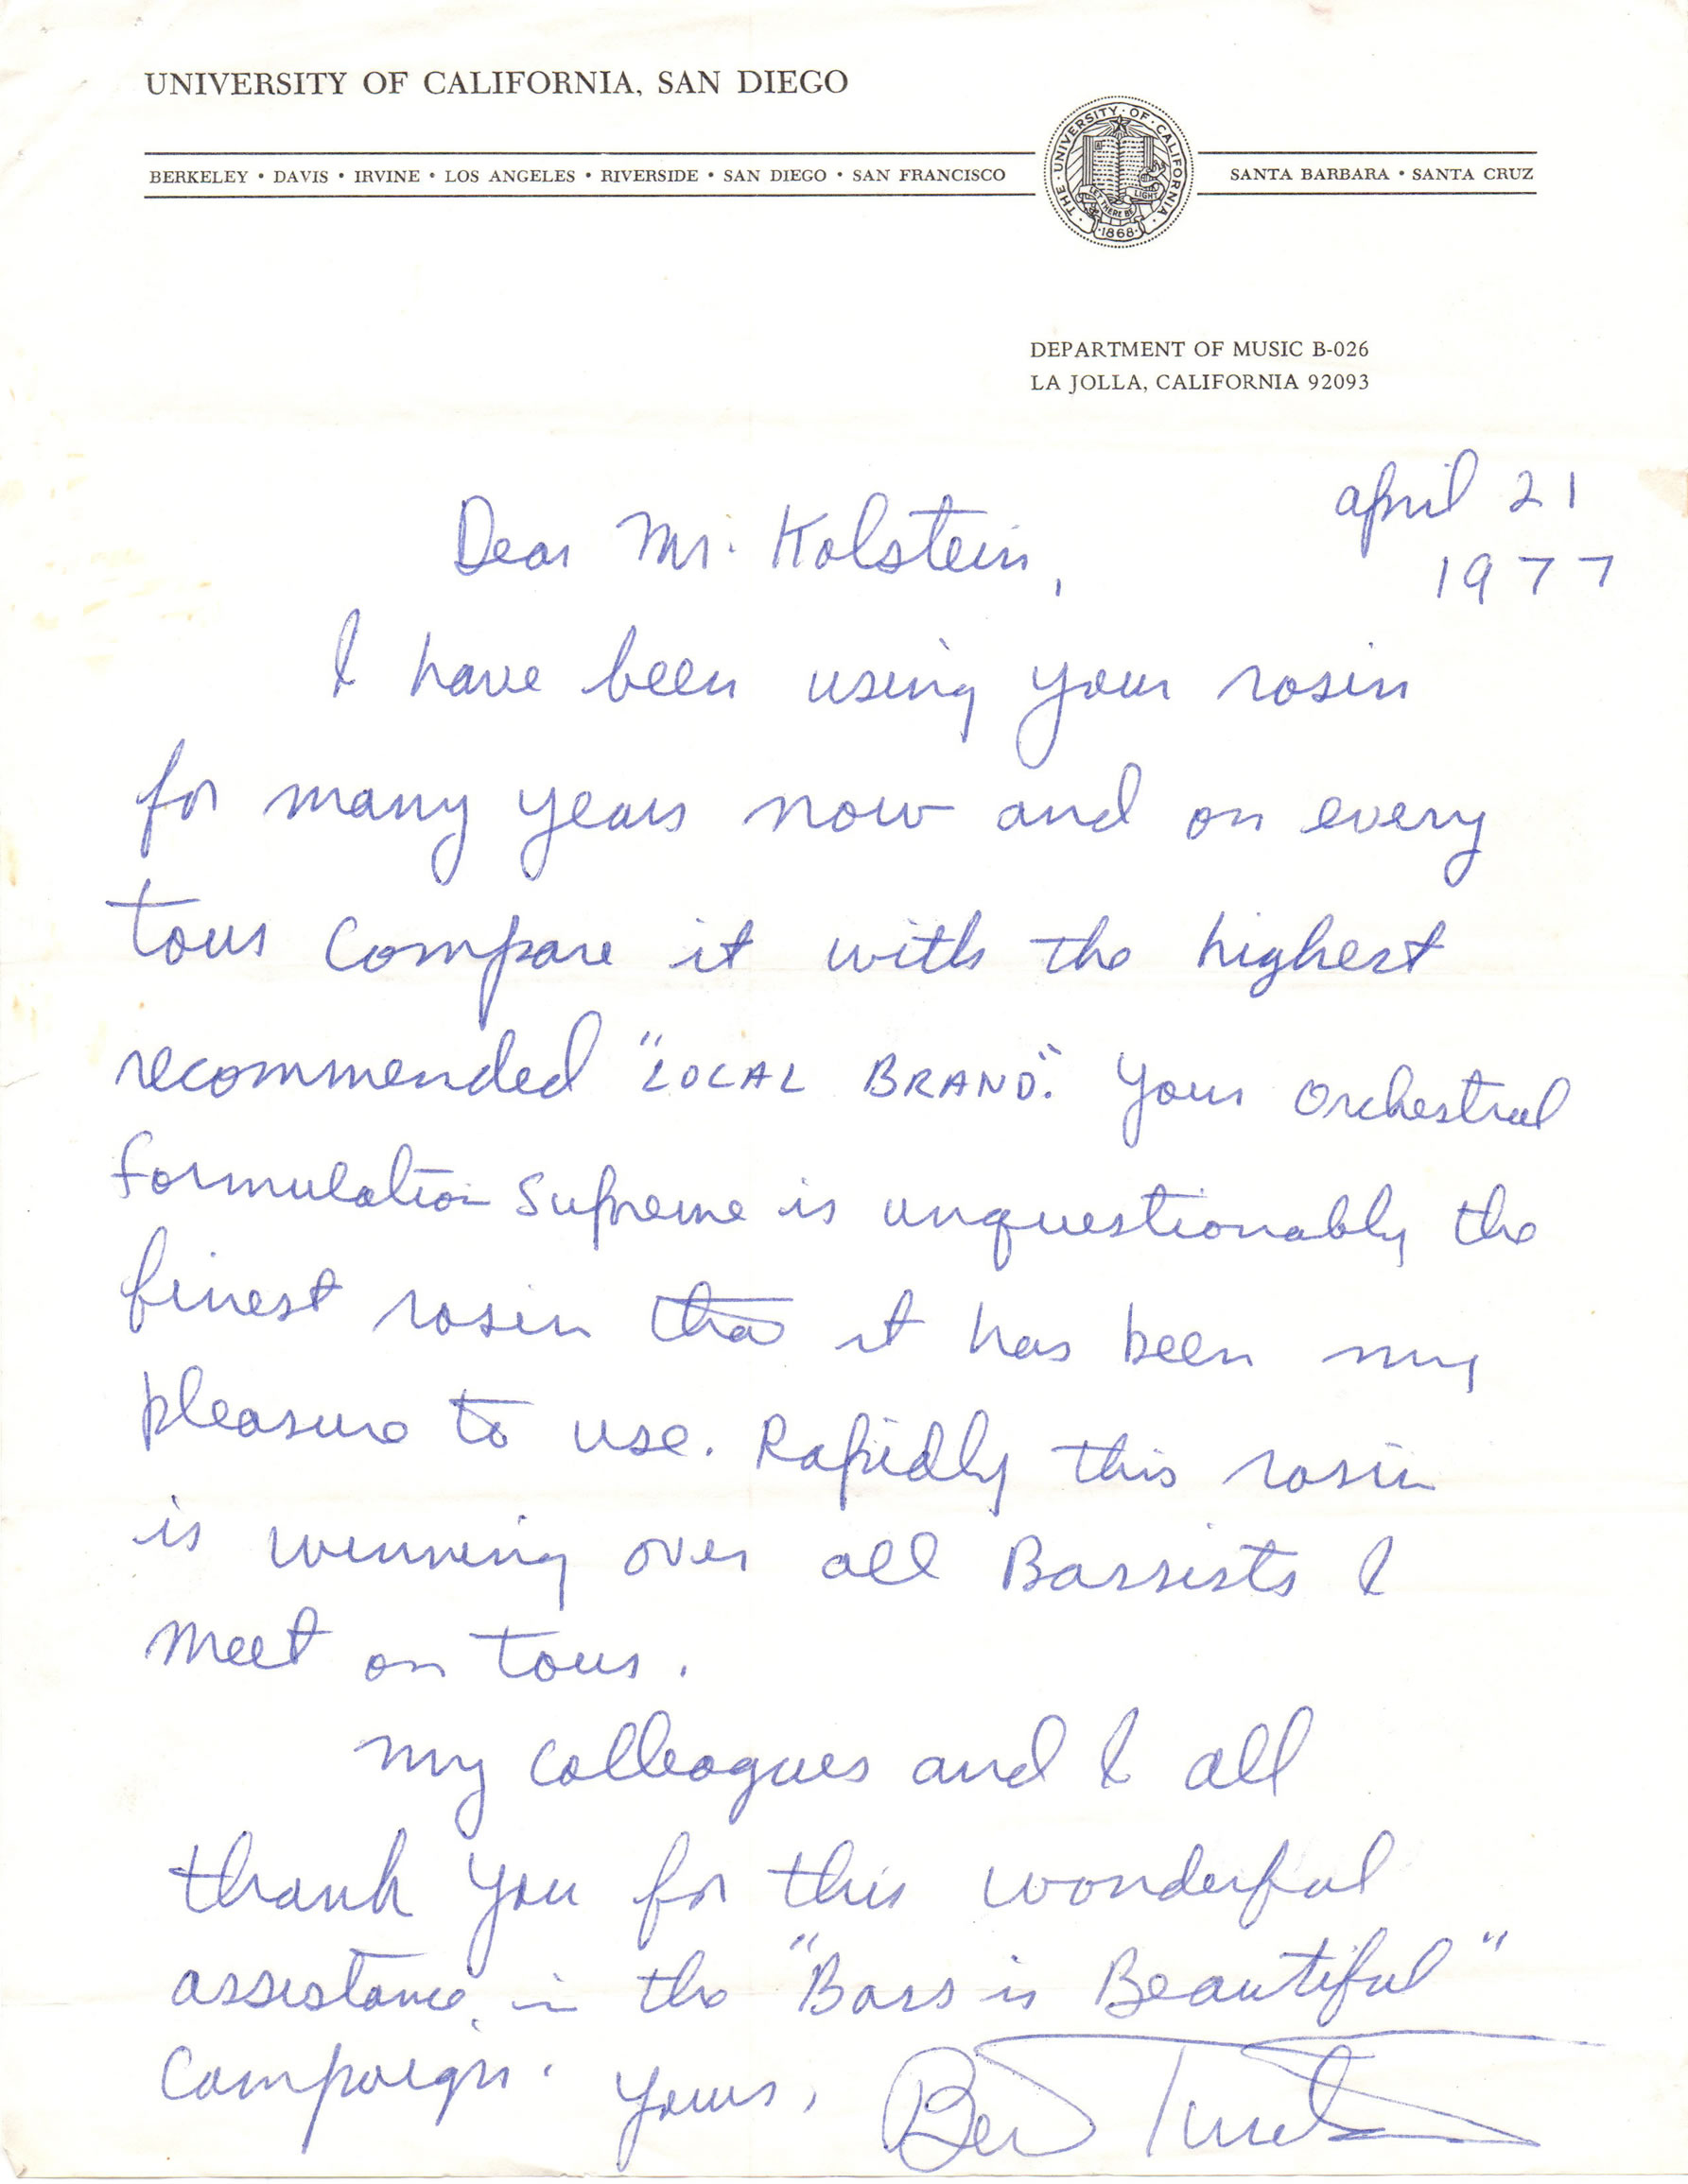 UNIVERSITY OF CALIFORNIA, SAN DIEGO
BERKELEY • DAVIS • IRVINE • LOS ANGELES • RIVERSIDE • SAN DIEGO • SAN FRANCISCO
SANTA BARBARA • SANTA CRUZ
THE • UNIVERSITY • OF • CALIFORNIA •
LET THERE BE LIGHT
• 1868 •
DEPARTMENT OF MUSIC B-026
LA JOLLA, CALIFORNIA 92093
april 21
1977
Dear Mr. Kolstein,
I have been using your rosin
for many years now and on every
tour compare it with the highest
recommended "LOCAL BRAND". Your Orchestral
formulation Supreme is unquestionably the
finest rosin tha it has been my
pleasure to use. Rapidly this rosin
is winning over all Bassists I
meet on tour.
My colleagues and I all
thank you for this wonderful
assistance in the "Bass is Beautiful"
Campaign. Yours, Bert Turetzky